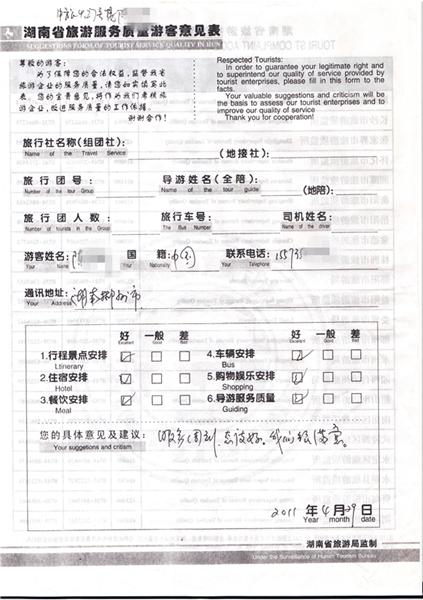 湖南省旅游服务质量游客意见表
SUGGESTIONS FORM OF TOURIST SERVICE QUALITY IN HUN
尊敬的游客:
为了保障您的合法权益,监督我省旅游企业的服务质量,请您如实填写此表。您的宝贵意见,将作为我们考核旅游企业,改进服务质量的工作依据。
谢谢合作!
Respected Tourists:
In order to guarantee your legitimate right and
to superintend our quality of service provided by
tourist enterprises, please fill in this form to the
Your valuable suggestions and criticism will
be the basis to assess our tourist enterprises and to
improve our quality of service
Thank you for cooperation!
旅行社名称(组团社): (地接社):
Name of the Travel Service
旅行团号: 导游姓名(全陪): (地陪):
Number of the tour Group Name of the tour guide
旅行团人数: 旅行车号: 司机姓名:
Number of tourists in the Group The Bus Number Name of the driver
游客姓名: 国籍:中国 联系电话:
Your Name Nationality Your Telephone
通讯地址:湖南郴州市
Your Address
好 一般 差 好 一般 差
Excellent Good Bad Excellent Good Bad
1.行程景点安排 4.车辆安排
Ltinerary Bus
2.住宿安排 5.购物娱乐安排
Hotel Shopping
3.餐饮安排 6.导游服务质量
Meal Guiding
您的具体意见及建议: 服务周到,态度好。我们很满意。
Your suggestions and critism
2011年4月29日
Year month date
湖南省旅游局监制
Under the Surveillance of Hunan Tourism Bureau